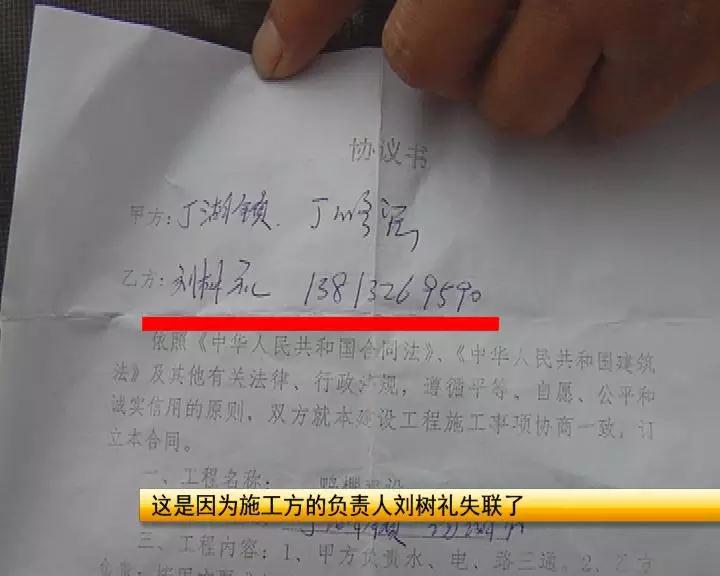 协议书
甲方：丁湖镇
乙方：刘树礼 13813269590
依照《中华人民共和国合同法》、《中华人民共和国建筑
法》及其他有关法律、行政法规，遵循平等、自愿、公平和
诚实信用的原则，双方就本建设工程施工事项协商一致，订
立本合同。
一、工程名称：
这是因为施工方的负责人刘树礼失联了
三、工程内容：1、甲方负责水、电、路三通。2、乙方